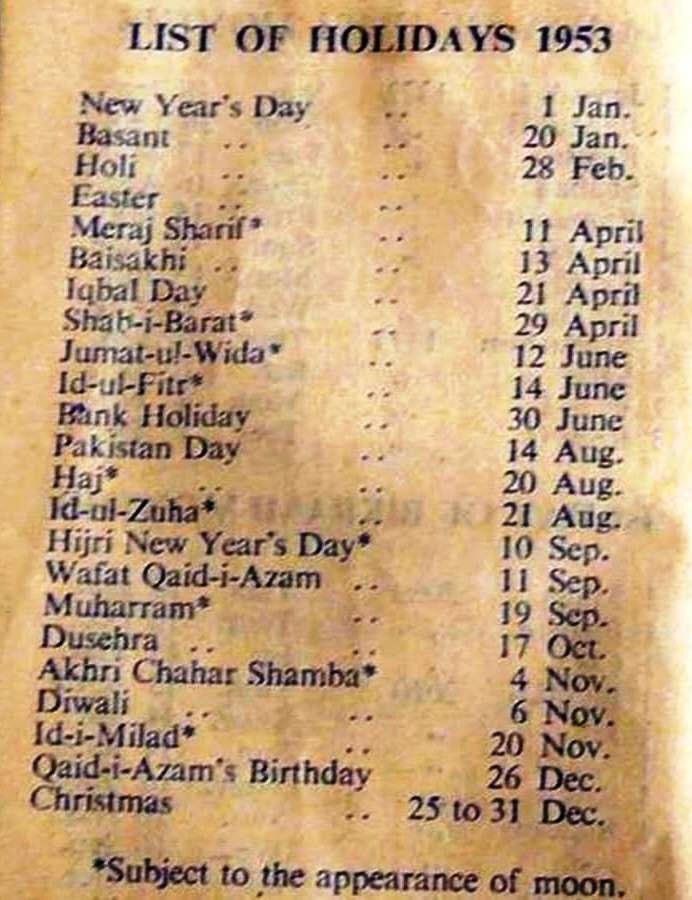 LIST OF HOLIDAYS 1953
New Year's Day .. 1 Jan.
Basant .. .. 20 Jan.
Holi .. .. 28 Feb.
Easter .. ..
Meraj Sharif* .. 11 April
Baisakhi .. .. 13 April
Iqbal Day .. 21 April
Shab-i-Barat* .. 29 April
Jumat-ul-Wida* .. 12 June
Id-ul-Fitr* .. 14 June
Bank Holiday .. 30 June
Pakistan Day .. 14 Aug.
Haj* .. .. 20 Aug.
Id-ul-Zuha* .. 21 Aug.
Hijri New Year's Day* 10 Sep.
Wafat Qaid-i-Azam .. 11 Sep.
Muharram* .. 19 Sep.
Dusehra .. .. 17 Oct.
Akhri Chahar Shamba* 4 Nov.
Diwali .. .. 6 Nov.
Id-i-Milad* .. 20 Nov.
Qaid-i-Azam's Birthday 26 Dec.
Christmas .. 25 to 31 Dec.
*Subject to the appearance of moon.